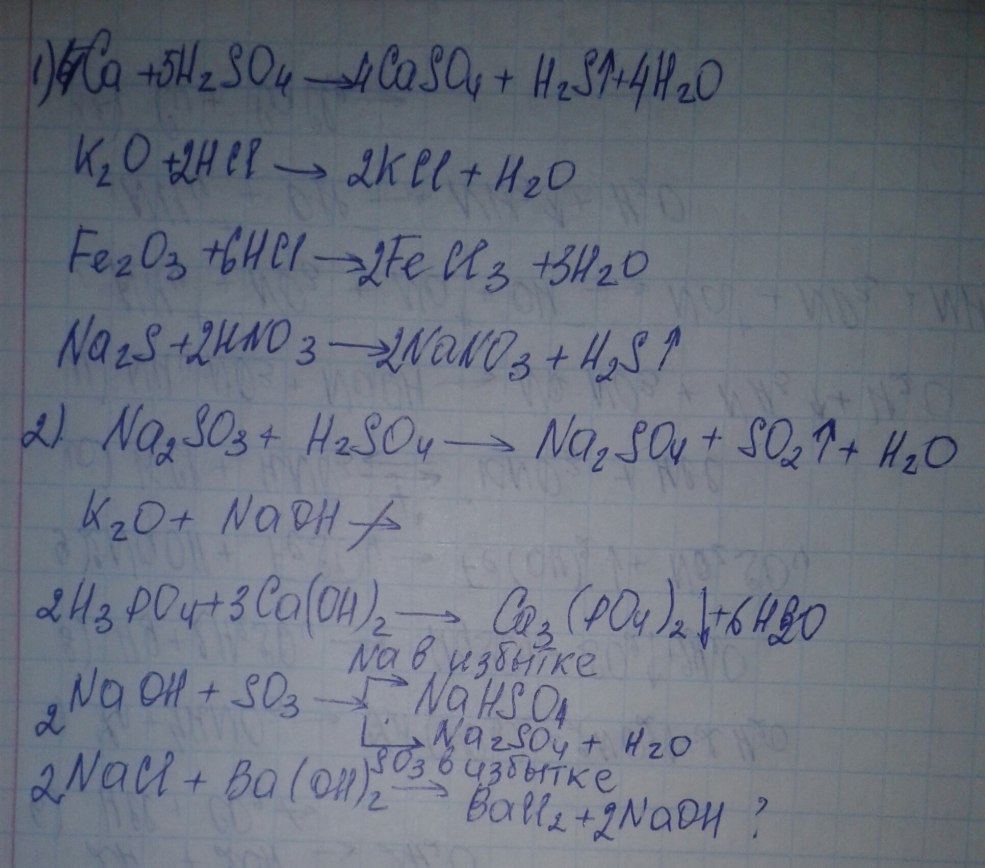 1) 4Ca + 5H₂SO₄ → 4CaSO₄ + H₂S↑ + 4H₂O
K₂O + 2HCl → 2KCl + H₂O
Fe₂O₃ + 6HCl → 2FeCl₃ + 3H₂O
Na₂S + 2HNO₃ → 2NaNO₃ + H₂S↑
2) Na₂SO₃ + H₂SO₄ → Na₂SO₄ + SO₂↑ + H₂O
K₂O + NaOH ↛
2H₃PO₄ + 3Ca(OH)₂ → Ca₃(PO₄)₂↓ + 6H₂O
Na в избытке
2NaOH + SO₃ → NaHSO₄
Na₂SO₄ + H₂O
SO₃ в избытке
2NaCl + Ba(OH)₂ → BaCl₂ + 2NaOH ?